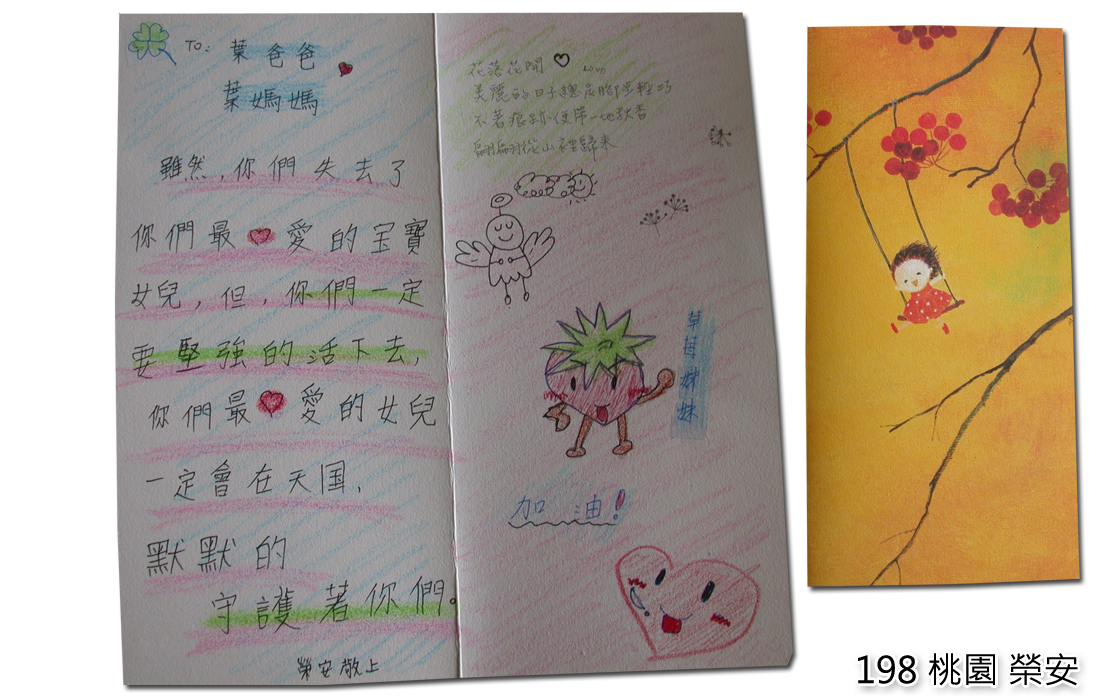 TO: 葉爸爸
葉媽媽
雖然,你們失去了
你們最愛的宝寶
女兒,但,你們一定
要堅強的活下去,
你們最愛的女兒
一定會在天国,
默默的
守護著你們。
榮安敬上
花落花開
美麗的日子總是腳步輕巧
不著痕跡
從山裡歸来
草莓妹妹
加油!
198 桃園 榮安